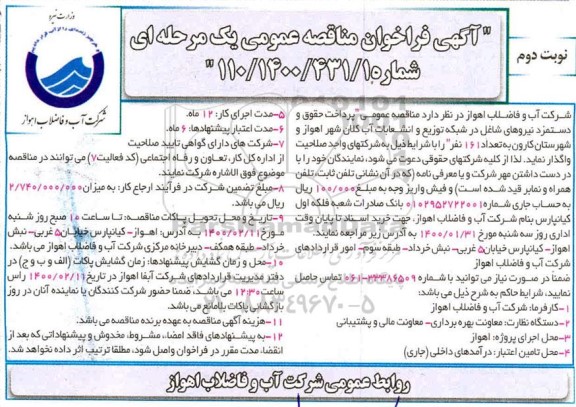 وزارت نیرو
شرکت آب و فاضلاب اهواز
" آگهی فراخوان مناقصه عمومی یک مرحله ای
شماره ۱۱۰/۱۴۰۰/۴۳۱/۱ "
نوبت دوم
شرکت آب و فاضلاب اهواز در نظر دارد مناقصه عمومی "پرداخت حقوق و
دستمزد نیروهای شاغل در شبکه توزیع و انشعابات آب کلان شهر اهواز و
شهرستان کارون به تعداد ۱۶۱ نفر" را با شرایط ذیل به شرکتهای واجد صلاحیت
واگذار نماید. لذا از کلیه شرکتهای حقوقی دعوت می شود، نمایندگان خود را با
در دست داشتن مهر شرکت و یا معرفی نامه (که در آن نشانی تلفن ثابت، تلفن
همراه و نمابر قید شده است) و فیش واریز وجه به مبلغ ۱۰۰/۰۰۰ ریال
به حساب جاری شماره ۰۱۰۲۹۵۲۷۲۲۰۰۱ بانک صادرات شعبه فلکه اول
کیانپارس بنام شرکت آب و فاضلاب اهواز، جهت خرید اسناد تا پایان وقت
اداری روز سه شنبه مورخ ۱۴۰۰/۰۱/۳۱ به آدرس زیر مراجعه نمایند.
اهواز- کیانپارس خیابان ۵ غربی- نبش خرداد- طبقه سوم- امور قراردادهای
شرکت آب و فاضلاب اهواز
ضمناً در صورت نیاز می توانید با شماره ۳۳۳۸۶۵۰۹-۰۶۱ تماس حاصل
نمایید. شرایط حاکم به شرح ذیل می باشد:
۱-کارفرما: شرکت آب و فاضلاب اهواز
۲-دستگاه نظارت: معاونت بهره برداری- معاونت مالی و پشتیبانی
۳-محل اجرای پروژه: اهواز
۴-محل تامین اعتبار: درآمدهای داخلی (جاری)
۵-مدت اجرای کار: ۱۲ ماه.
۶-مدت اعتبار پیشنهادها: ۶ ماه.
۷-شرکت های دارای گواهی تایید صلاحیت
از اداره کل کار، تعاون و رفاه اجتماعی (کد فعالیت ۷) می توانند در مناقصه
موضوع فوق الاشاره شرکت نمایند.
۸-مبلغ تضمین شرکت در فرآیند ارجاع کار: به میزان ۲/۷۴۰/۰۰۰/۰۰۰
ریال می باشد.
۹-تاریخ و محل تحویل پاکات مناقصه: تا ساعت ۱۰ صبح روز شنبه
مورخ ۱۴۰۰/۰۲/۱۱ به آدرس: اهواز- کیانپارس خیابان ۵ غربی- نبش
خرداد- طبقه همکف- دبیرخانه مرکزی شرکت آب و فاضلاب اهواز می باشد.
۱۰-محل و زمان گشایش پیشنهادها: زمان گشایش پاکات (الف و ب و ج) در
دفتر مدیریت قراردادهای شرکت آبفا اهواز در تاریخ ۱۴۰۰/۰۲/۱۱ راس
ساعت ۱۲:۳۰ می باشد. ضمناً حضور شرکت کنندگان یا نماینده آنان در روز
بازگشایی پاکات بلامانع می باشد.
۱۱-هزینه آگهی مناقصه به عهده برنده مناقصه می باشد.
۱۲-به پیشنهادهای فاقد امضا، مشروط، مخدوش و پیشنهاداتی که بعد از
انقضا، مدت مقرر در فراخوان واصل شود، مطلقا ترتیب اثر داده نخواهد شد.
روابط عمومی شرکت آب و فاضلاب اهواز